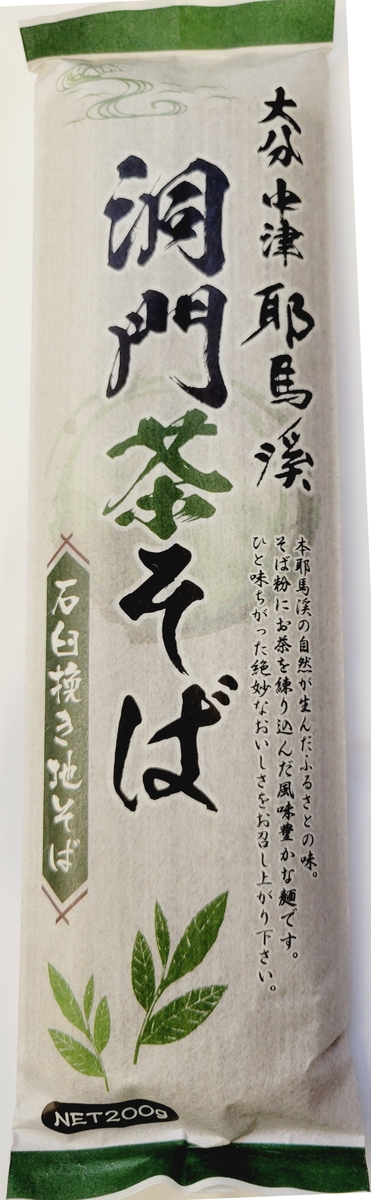 大分 中津 耶馬溪
洞門茶そば
本耶馬溪の自然が生んだふるさとの味。
そば粉にお茶を練り込んだ風味豊かな麺です。
ひと味ちがった絶妙なおいしさをお召し上がり下さい。
石臼挽き地そば
NET200g